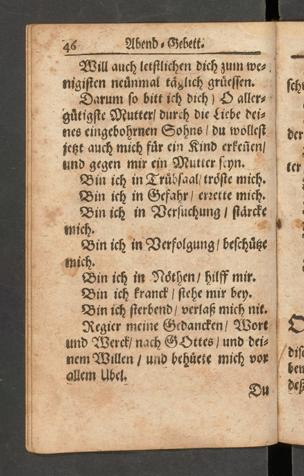 46 Abend-Gebett.
Will auch letstlichen dich zum we-
nigisten neünmal täglich grüessen.
Darum so bitt ich dich / O aller-
gütigste Mutter / durch die Liebe dei-
nes eingebohrnen Sohns / du wollest
jetzt auch mich für ein Kind erkeñen /
und gegen mir ein Mutter seyn.
Bin ich in Trübsaal / tröste mich.
Bin ich in Gefahr / errette mich.
Bin ich in Versuchung / stärcke
mich.
Bin ich in Verfolgung / beschütze
mich.
Bin ich in Nöthen / hilff mir.
Bin ich kranck / stehe mir bey.
Bin ich sterbend / verlaß mich nit.
Regier meine Gedancken / Wort
und Werck / nach GOttes / und dei-
nem Willen / und behüete mich vor
allem Ubel.
Du